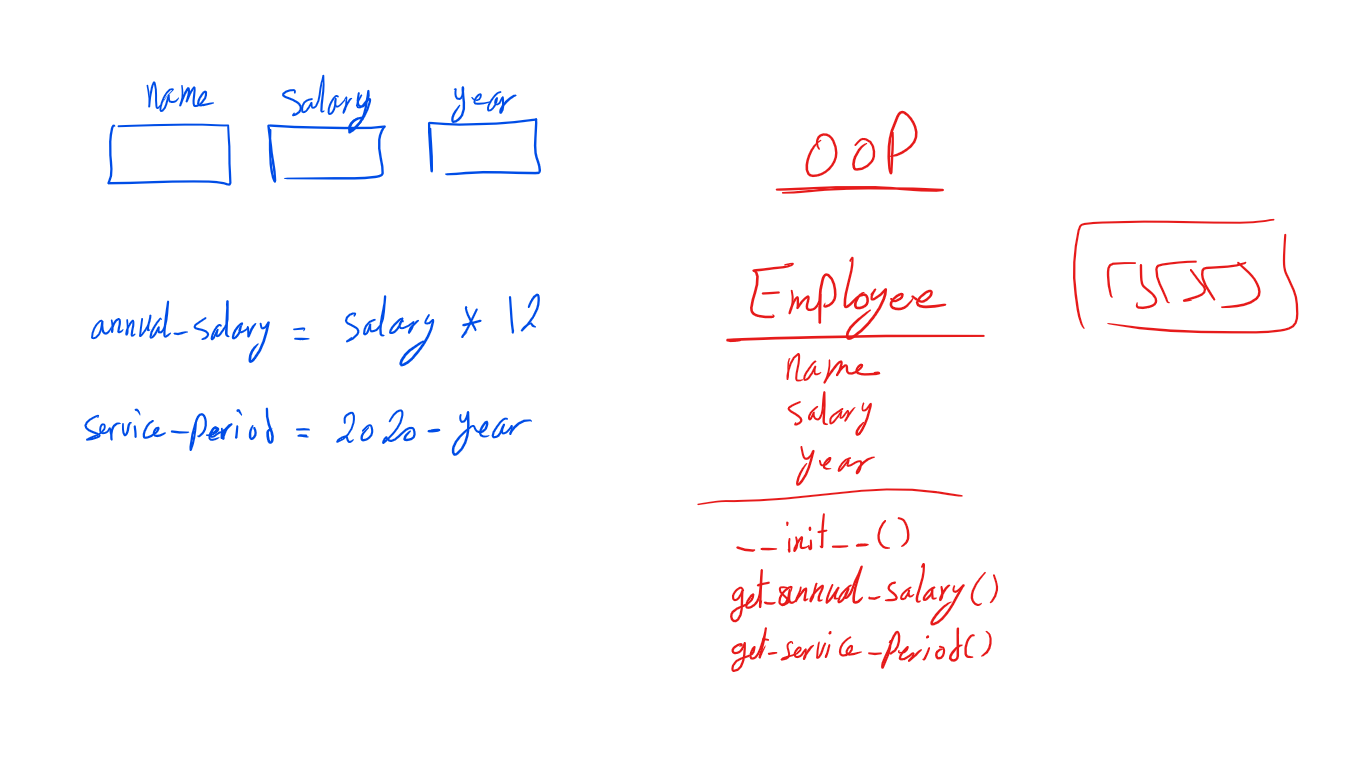 name salary year
annual_salary = salary * 12
service_period = 2020 - year
OOP
Employee
name
salary
year
__init__()
get_annual_salary()
get_service_period()